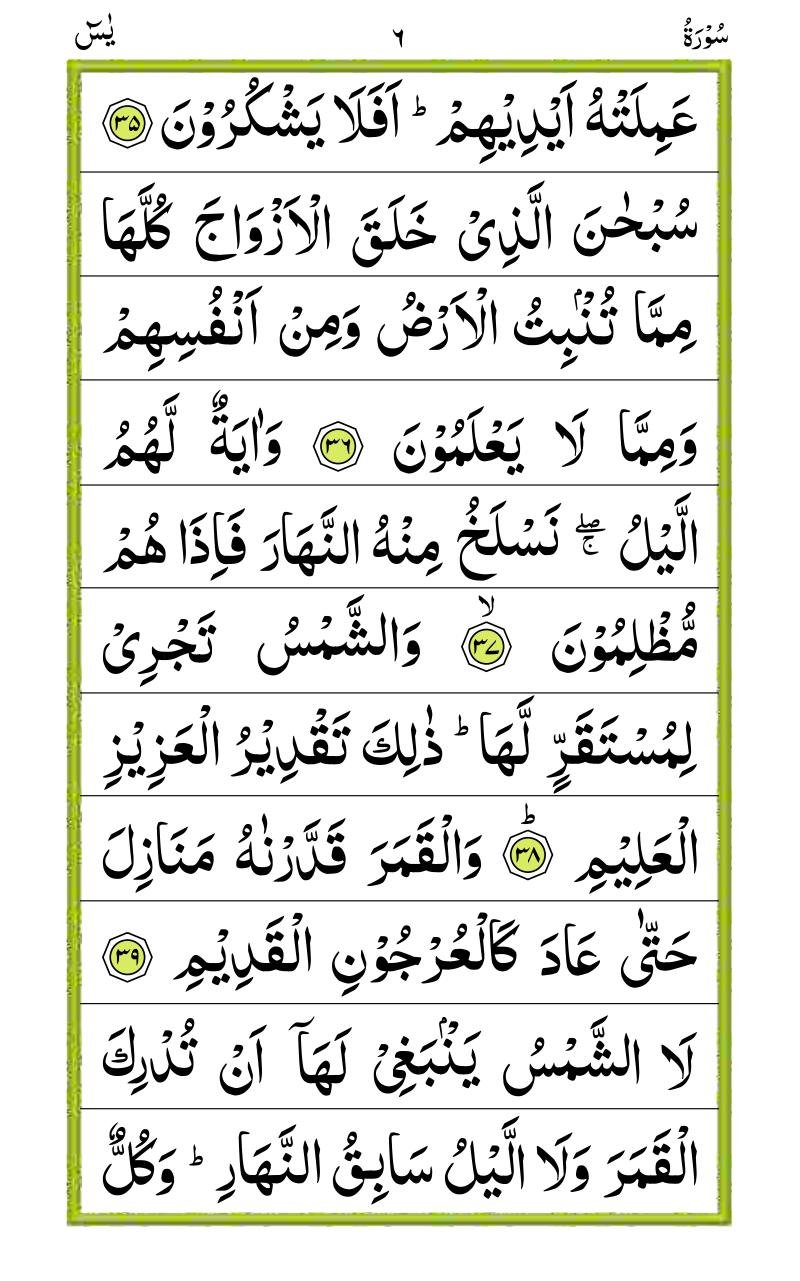 سُوْرَةُ ٦ يٰسٓ
عَمِلَتْهُ اَيْدِيْهِمْ ؕ اَفَلَا يَشْكُرُوْنَ ۝٣٥
سُبْحٰنَ الَّذِىْ خَلَقَ الْاَزْوَاجَ كُلَّهَا
مِمَّا تُنْۢبِتُ الْاَرْضُ وَمِنْ اَنْفُسِهِمْ
وَمِمَّا لَا يَعْلَمُوْنَ ۝٣٦ وَاٰيَةٌ لَّهُمُ
الَّيْلُ ۖۚ نَسْلَخُ مِنْهُ النَّهَارَ فَاِذَا هُمْ
مُّظْلِمُوْنَ ۙ‏۝٣٧ وَالشَّمْسُ تَجْرِىْ
لِمُسْتَقَرٍّ لَّهَا ؕ ذٰلِكَ تَقْدِيْرُ الْعَزِيْزِ
الْعَلِيْمِ ؕ‏۝٣٨ وَالْقَمَرَ قَدَّرْنٰهُ مَنَازِلَ
حَتّٰى عَادَ كَالْعُرْجُوْنِ الْقَدِيْمِ ۝٣٩
لَا الشَّمْسُ يَنْۢبَغِىْ لَهَاۤ اَنْ تُدْرِكَ
الْقَمَرَ وَلَا الَّيْلُ سَابِقُ النَّهَارِ ؕ وَكُلٌّ